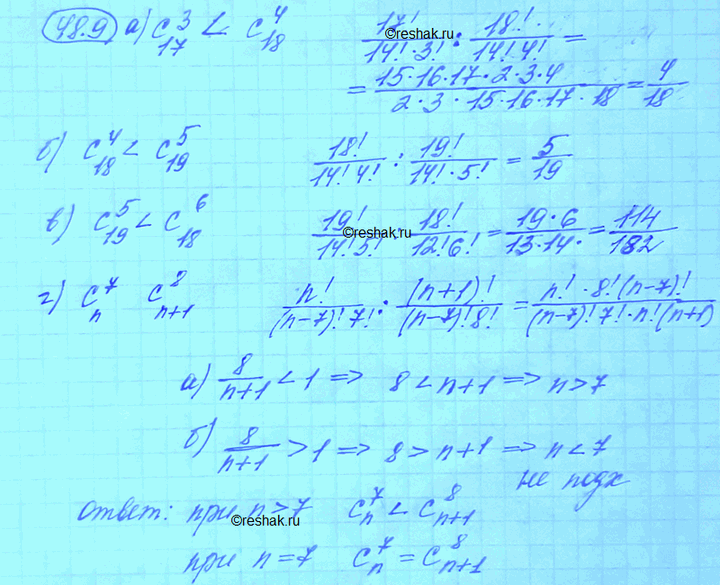 48.9 а) C₁₇³ < C₁₈⁴ 17!/(14!·3!) : 18!/(14!4!) =
= (15·16·17·2·3·4)/(2·3·15·16·17·18) = 4/18
б) C₁₈⁴ < C₁₉⁵ 18!/(14!4!) : 19!/(14!·5!) = 5/19
в) C₁₉⁵ < C₁₈⁶ 19!/(14!5!) 18!/(12!6!) = (19·6)/(13·14·) = 114/182
г) Cₙ⁷ Cₙ₊₁⁸ n!/((n-7)!7!) : (n+1)!/((n-7)!8!) = (n!·8!(n-7)!)/((n-7)!7!·n!(n+1))
а) 8/(n+1) < 1 => 8 < n+1 => n > 7
б) 8/(n+1) > 1 => 8 > n+1 => n < 7
не подх
ответ: при n > 7 Cₙ⁷ < Cₙ₊₁⁸
при n = 7 Cₙ⁷ = Cₙ₊₁⁸
©reshak.ru
©reshak.ru
©reshak.ru